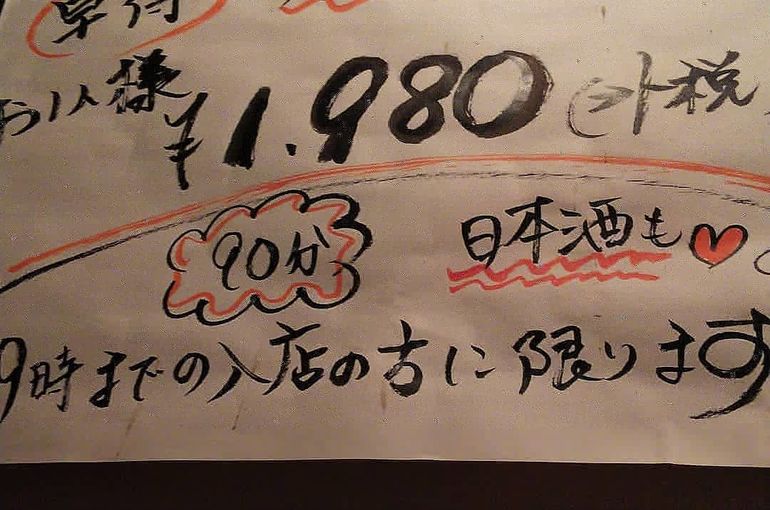 早得
お1人様 ¥1.980 (+税
90分 日本酒も
9時までの入店の方に限ります